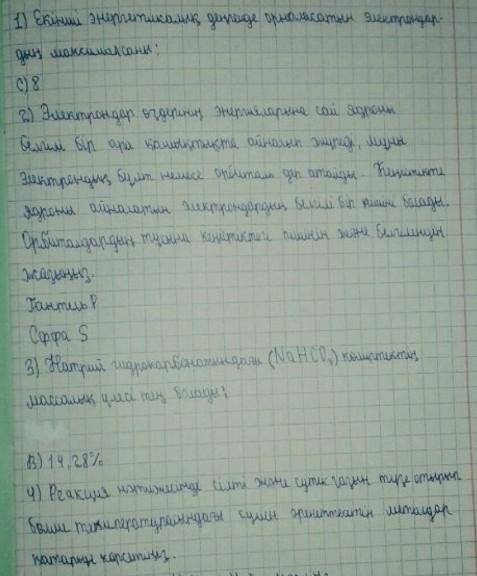 1) Екінші энергетикалық деңгейде орналасатын электрондар-
дың максимал саны:
С) 8
2) Электрондар өздерінің энергияларына сай ядроны
белгілі бір ара қашықтықта айналып жүреді, мұны
электрондық бұлт немесе орбиталь деп атайды. Кеңістікте
ядроны айналатын электрондардың белгілі бір пішіні болады.
Орбитальдардың тұсына кеңістіктегі пішінін және белгіленуін
жазыңыз.
Гантель P
Сфера S
3) Натрий гидрокарбонатындағы (NaHCO₃) көміртектің
массалық үлесі тең болады:
В) 14,28%
4) Реакция нәтижесінде сілті және сутек газын түзе отырып
бөлме температурасындағы сумен әрекеттесетін металдар
қатарын көрсетіңіз.